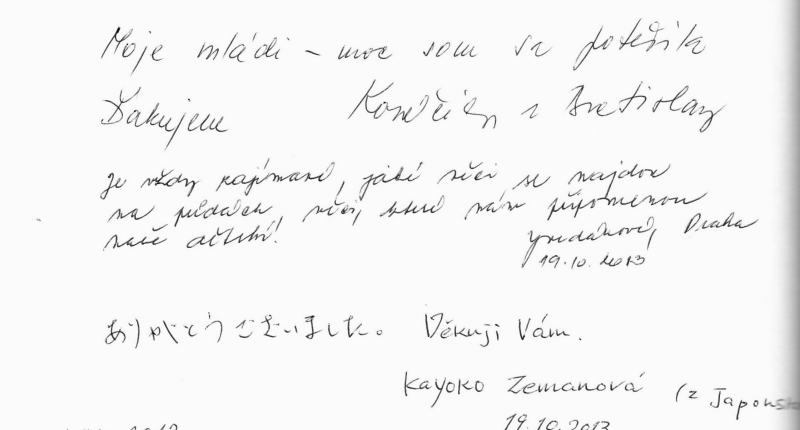 Moje mládi – moc som sa potešila
Ďakujem Končekij z Bratislavy
Je vždy zajímavé, jaké věci se najdou
na půdách, věci, které nám připomenou
naše dětství! Praha
19.10.2013
ありがとうございました。 Děkuji Vám.
Kayoko Zemanová (z Japonska
19.10.2013